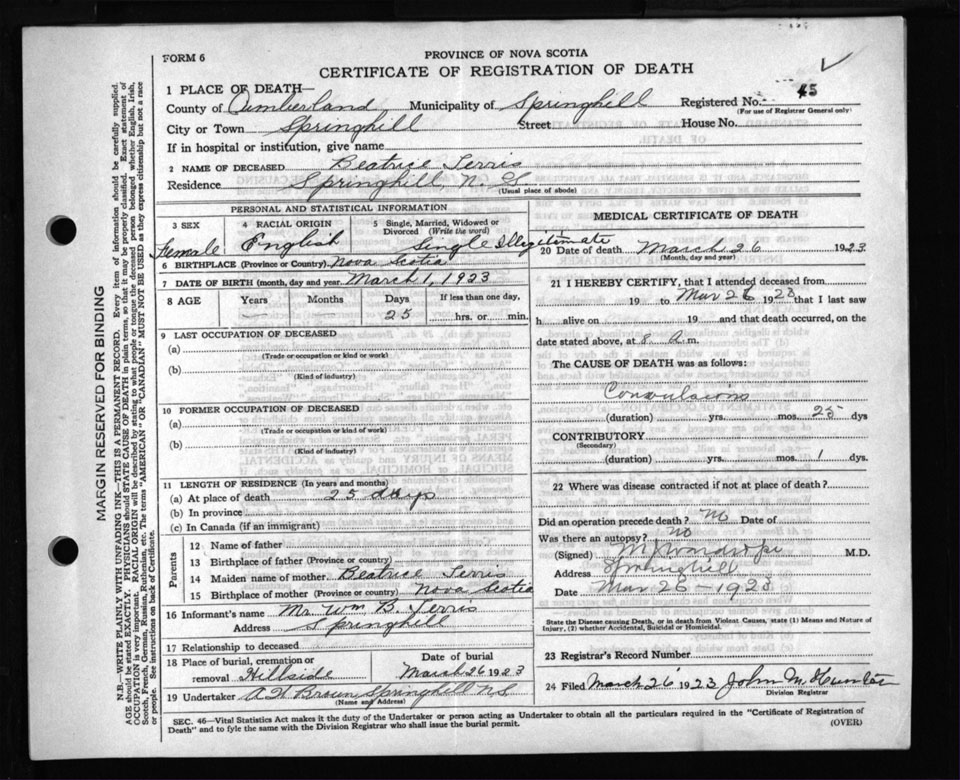 FORM 6
PROVINCE OF NOVA SCOTIA
CERTIFICATE OF REGISTRATION OF DEATH
1 PLACE OF DEATH—
County of Cumberland Municipality of Springhill Registered No. 45
(For use of Registrar General only)
City or Town Springhill Street House No.
If in hospital or institution, give name
2 NAME OF DECEASED Beatrice Terris
Residence Springhill, N.S.
(Usual place of abode)
PERSONAL AND STATISTICAL INFORMATION
3 SEX Female
4 RACIAL ORIGIN English
5 Single, Married, Widowed or Divorced (Write the word) Single Illegitimate
6 BIRTHPLACE (Province or Country) Nova Scotia
7 DATE OF BIRTH (month, day and year) March 1, 1923
8 AGE Years Months Days If less than one day,
— — 25 hrs. or min.
9 LAST OCCUPATION OF DECEASED
(a)
(Trade or occupation or kind of work)
(b)
(Kind of industry)
10 FORMER OCCUPATION OF DECEASED
(a)
(Trade or occupation or kind of work)
(b)
(Kind of industry)
11 LENGTH OF RESIDENCE (In years and months)
(a) At place of death 25 days
(b) In province
(c) In Canada (if an immigrant)
Parents
12 Name of father
13 Birthplace of father (Province or country)
14 Maiden name of mother Beatrice Terris
15 Birthplace of mother (Province or country) Nova Scotia
16 Informant's name Mr. Wm B. Terris
Address Springhill
17 Relationship to deceased
18 Place of burial, cremation or removal Hillside
Date of burial March 26 1923
19 Undertaker A H Brown Springhill N.S
(Name and Address)
MEDICAL CERTIFICATE OF DEATH
20 Date of death March 26 1923
(Month, day and year)
21 I HEREBY CERTIFY, that I attended deceased from
19 to Mar 26 1923 that I last saw
h alive on 19 and that death occurred, on the
date stated above, at 8 a.m.
The CAUSE OF DEATH was as follows:
Convulsions
(duration) yrs. mos. 25 dys
CONTRIBUTORY
(Secondary)
(duration) yrs. mos. 1 dys.
22 Where was disease contracted if not at place of death?
Did an operation precede death? No Date of
Was there an autopsy? No
(Signed) M.D.
Address Springhill
Date Mar 26 - 1923
State the Disease causing Death, or in death from Violent Causes, state (1) Means and Nature of
Injury, (2) whether Accidental, Suicidal or Homicidal.
23 Registrar's Record Number
24 Filed March 26 1923 John M. Hunter
Division Registrar
SEC. 46—Vital Statistics Act makes it the duty of the Undertaker or person acting as Undertaker to obtain all the particulars required in the "Certificate of Registration of
Death" and to fyle the same with the Division Registrar who shall issue the burial permit.
(OVER)
MARGIN RESERVED FOR BINDING
N.B.—WRITE PLAINLY WITH UNFADING INK—THIS IS A PERMANENT RECORD. Every item of information should be carefully supplied.
AGE should be stated EXACTLY. PHYSICIANS should STATE CAUSE OF DEATH in plain terms, so that it may be properly classified. Exact statement of
OCCUPATION is very important. RACIAL ORIGIN will be described by stating to what people or tongue the deceased person belonged whether English, Irish,
Scotch, French, German, Russian, Ruthenian, etc. The terms "AMERICAN" or "CANADIAN" MUST NOT BE USED as they express citizenship but not a race
or people. See instructions on back of Certificate.